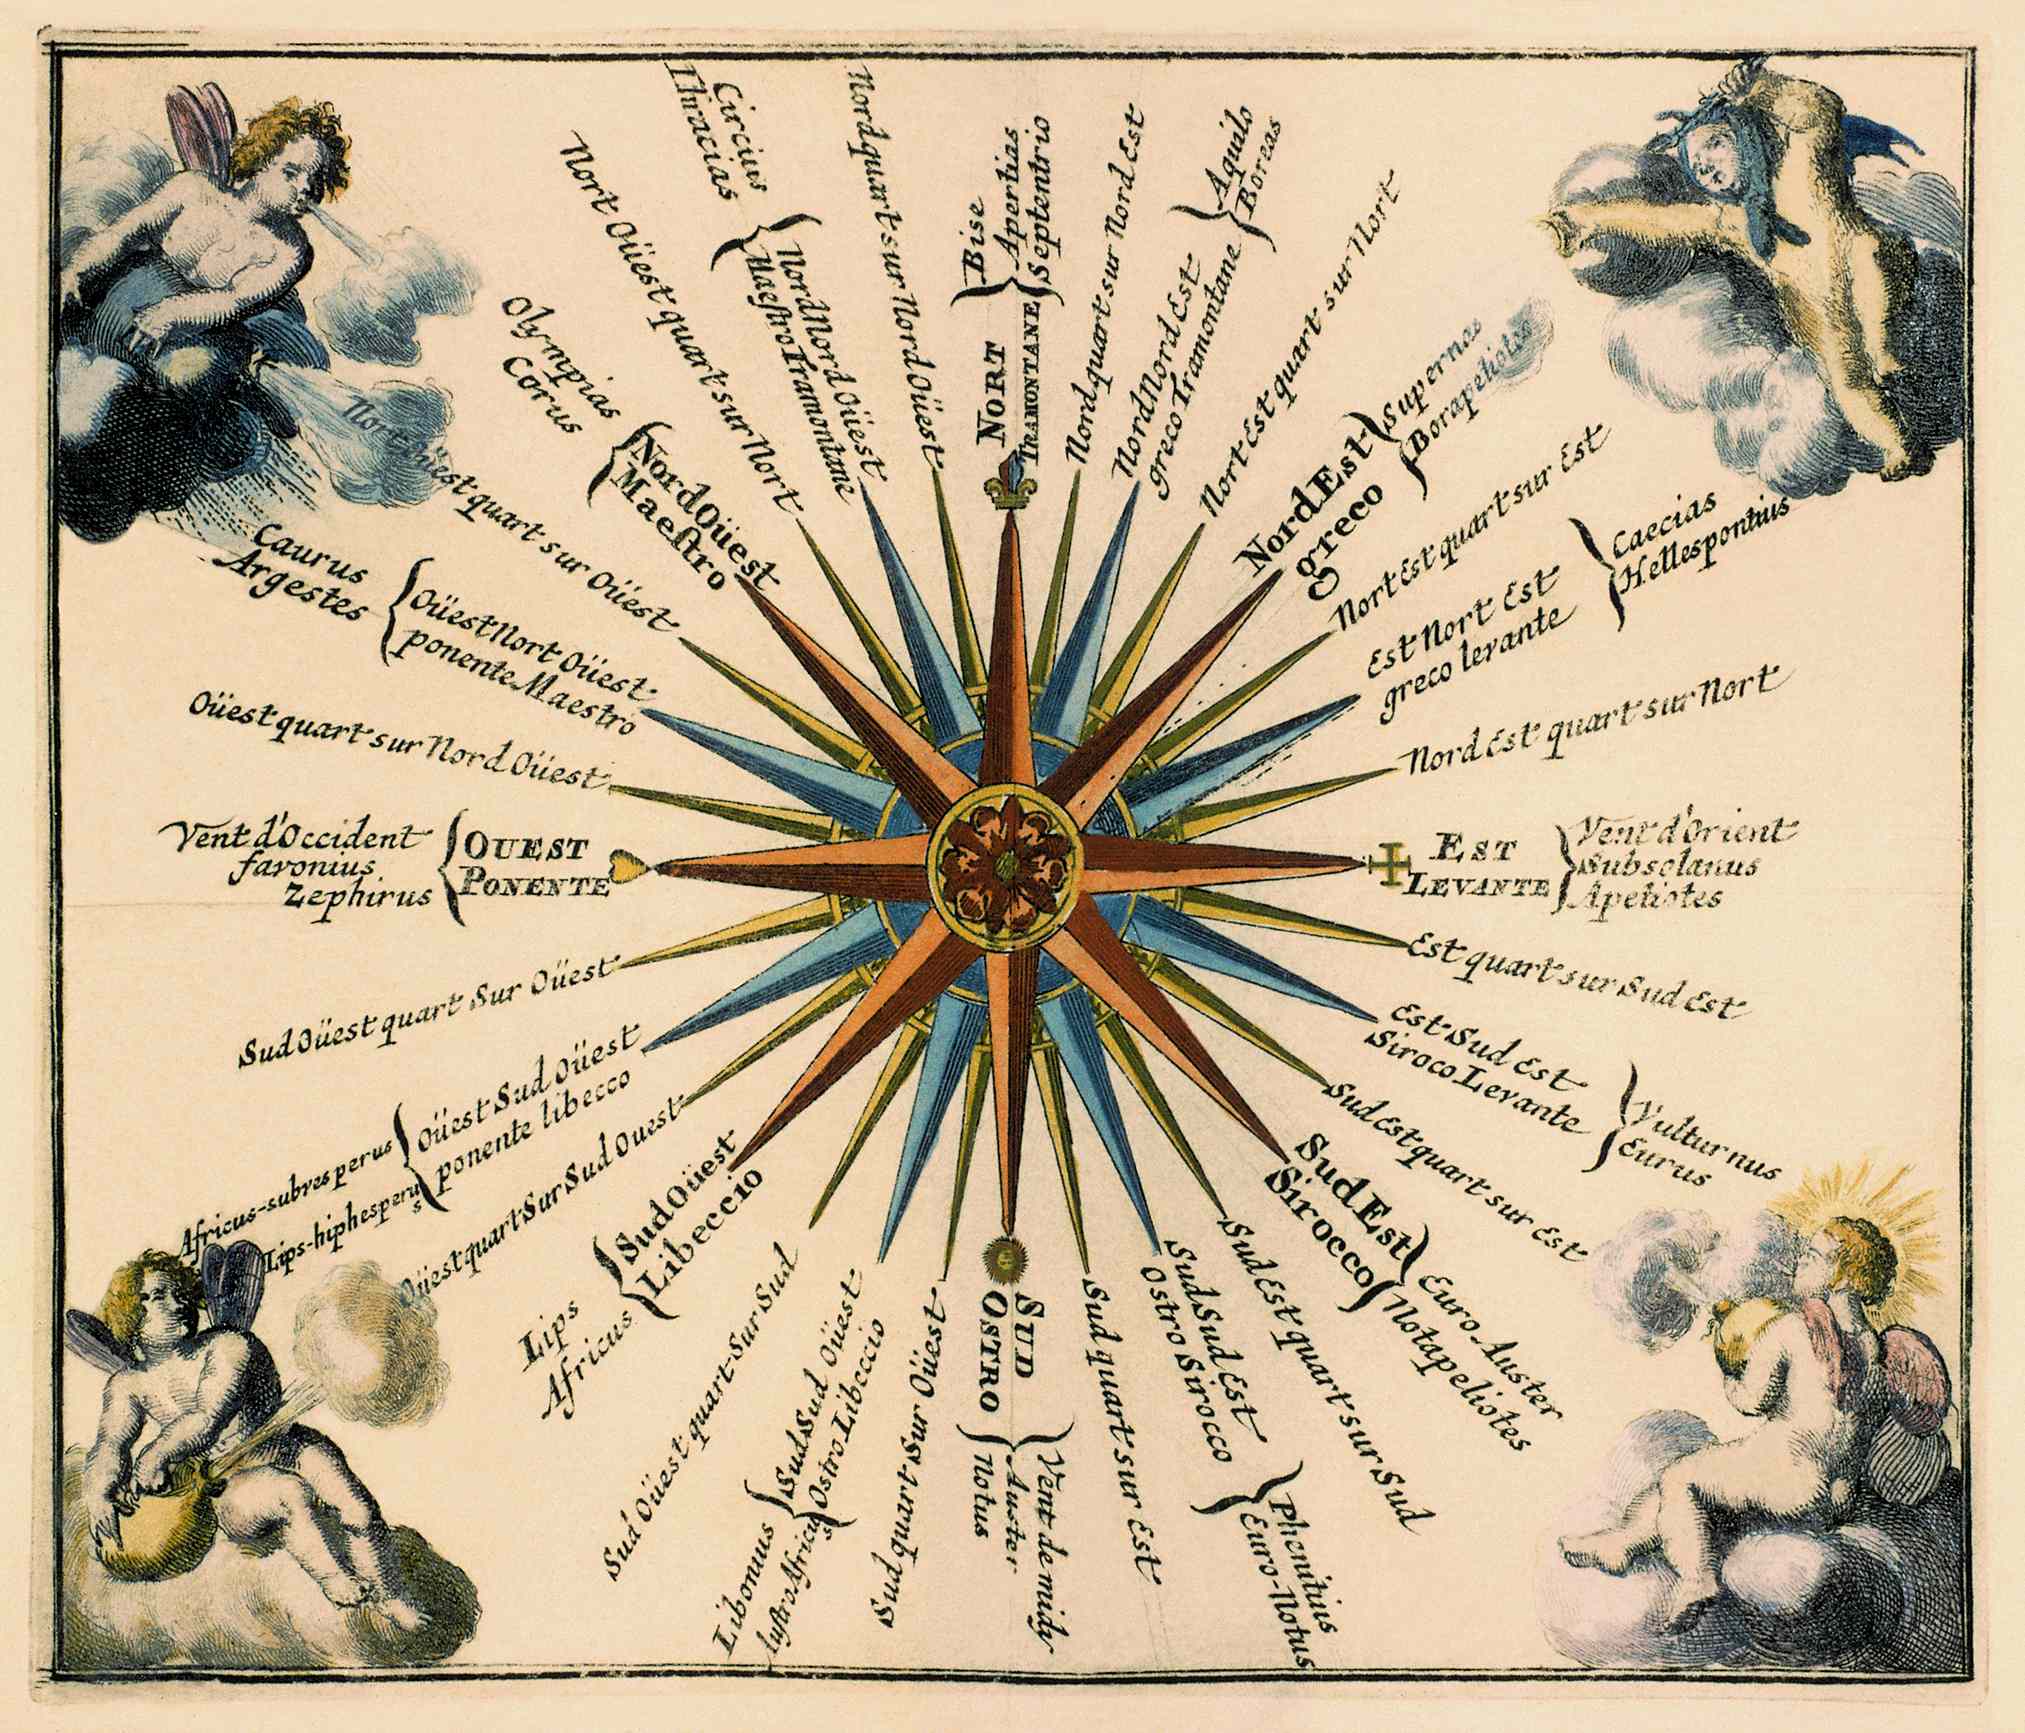 NORT
TRAMONTANE
Bise
Apertias
Septentrio
Nord quart sur Nord Est
Nord Nord Est
greco Tramontane
Aquilo
Boreas
Nort Est quart sur Nort
Nord Est
greco
Supernas
Borapeliotes
Nort Est quart sur Est
Est Nort Est
greco levante
Caecias
Hellespontius
Nord Est quart sur Nort
EST
LEVANTE
Vent d'Orient
Subsolanus
Apeliotes
Est quart sur Sud Est
Est Sud Est
Siroco Levante
Vulturnus
Eurus
Sud Est quart sur Est
Sud Est
Sirocco
Euro Auster
Notapeliotes
Sud Est quart sur Sud
Sud Sud Est
Ostro Sirocco
Phenitius
Euro-Notus
Sud quart sur Est
SUD
OSTRO
Vent de midy
Auster
Notus
Sud quart Sur Oüest
Sud Sud Oüest
Ostro Libeccio
Libonus
Sud Oüest quart Sur Sud
Sud Oüest
Libeccio
Lips
Africus
Oüest quart Sur Sud Ouest
Oüest Sud Oüest
ponente libecco
Africus-subvesperus
Lips-hiphesperus
Sud Oüest quart Sur Oüest
OUEST
PONENTE
Vent d'Occident
favonius
Zephirus
Oüest quart sur Nord Oüest
Oüest Nort Oüest
ponente Maestro
Caurus
Argestes
Nort Oüest quart sur Oüest
Nord Oüest
Maeſtro
Olympias
Corus
Nort Oüest quart sur Nort
Nord Nord Oüest
Maeſtro Tramontane
Circius
Thracias
Nord quart sur Nord Oüest